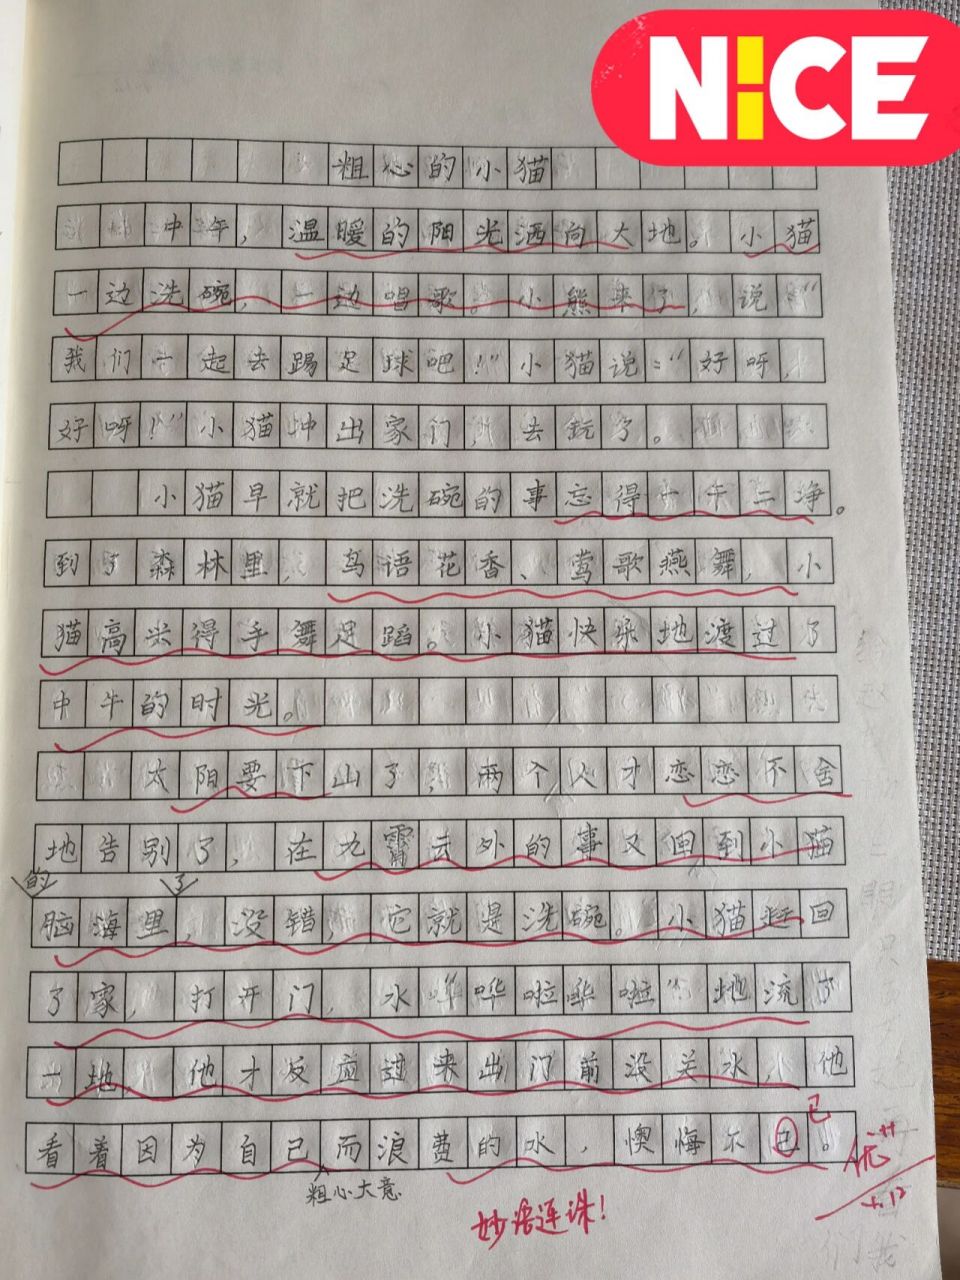 NICE
粗心的小猫
中午，温暖的阳光洒向大地。小猫
一边洗碗，一边唱歌。小熊来了，说："
我们一起去踢足球吧！"小猫说："好呀，
好呀！"小猫冲出家门，去玩了。
小猫早就把洗碗的事忘得一干二净。
到了森林里，鸟语花香、莺歌燕舞，小
猫高兴得手舞足蹈。小猫快乐地渡过了
中午的时光。
太阳要下山了，两个人才恋恋不舍
地告别了，在九霄云外的事又回到小猫
的 了
脑海里，没错，它就是洗碗。小猫赶回
了家，打开门，水"哗哗啦哗啦"地流了
一地，他才反应过来出门前没关水，他
己
看着因为自己而浪费的水，懊悔不已。
粗心大意
优++
妙语连珠！